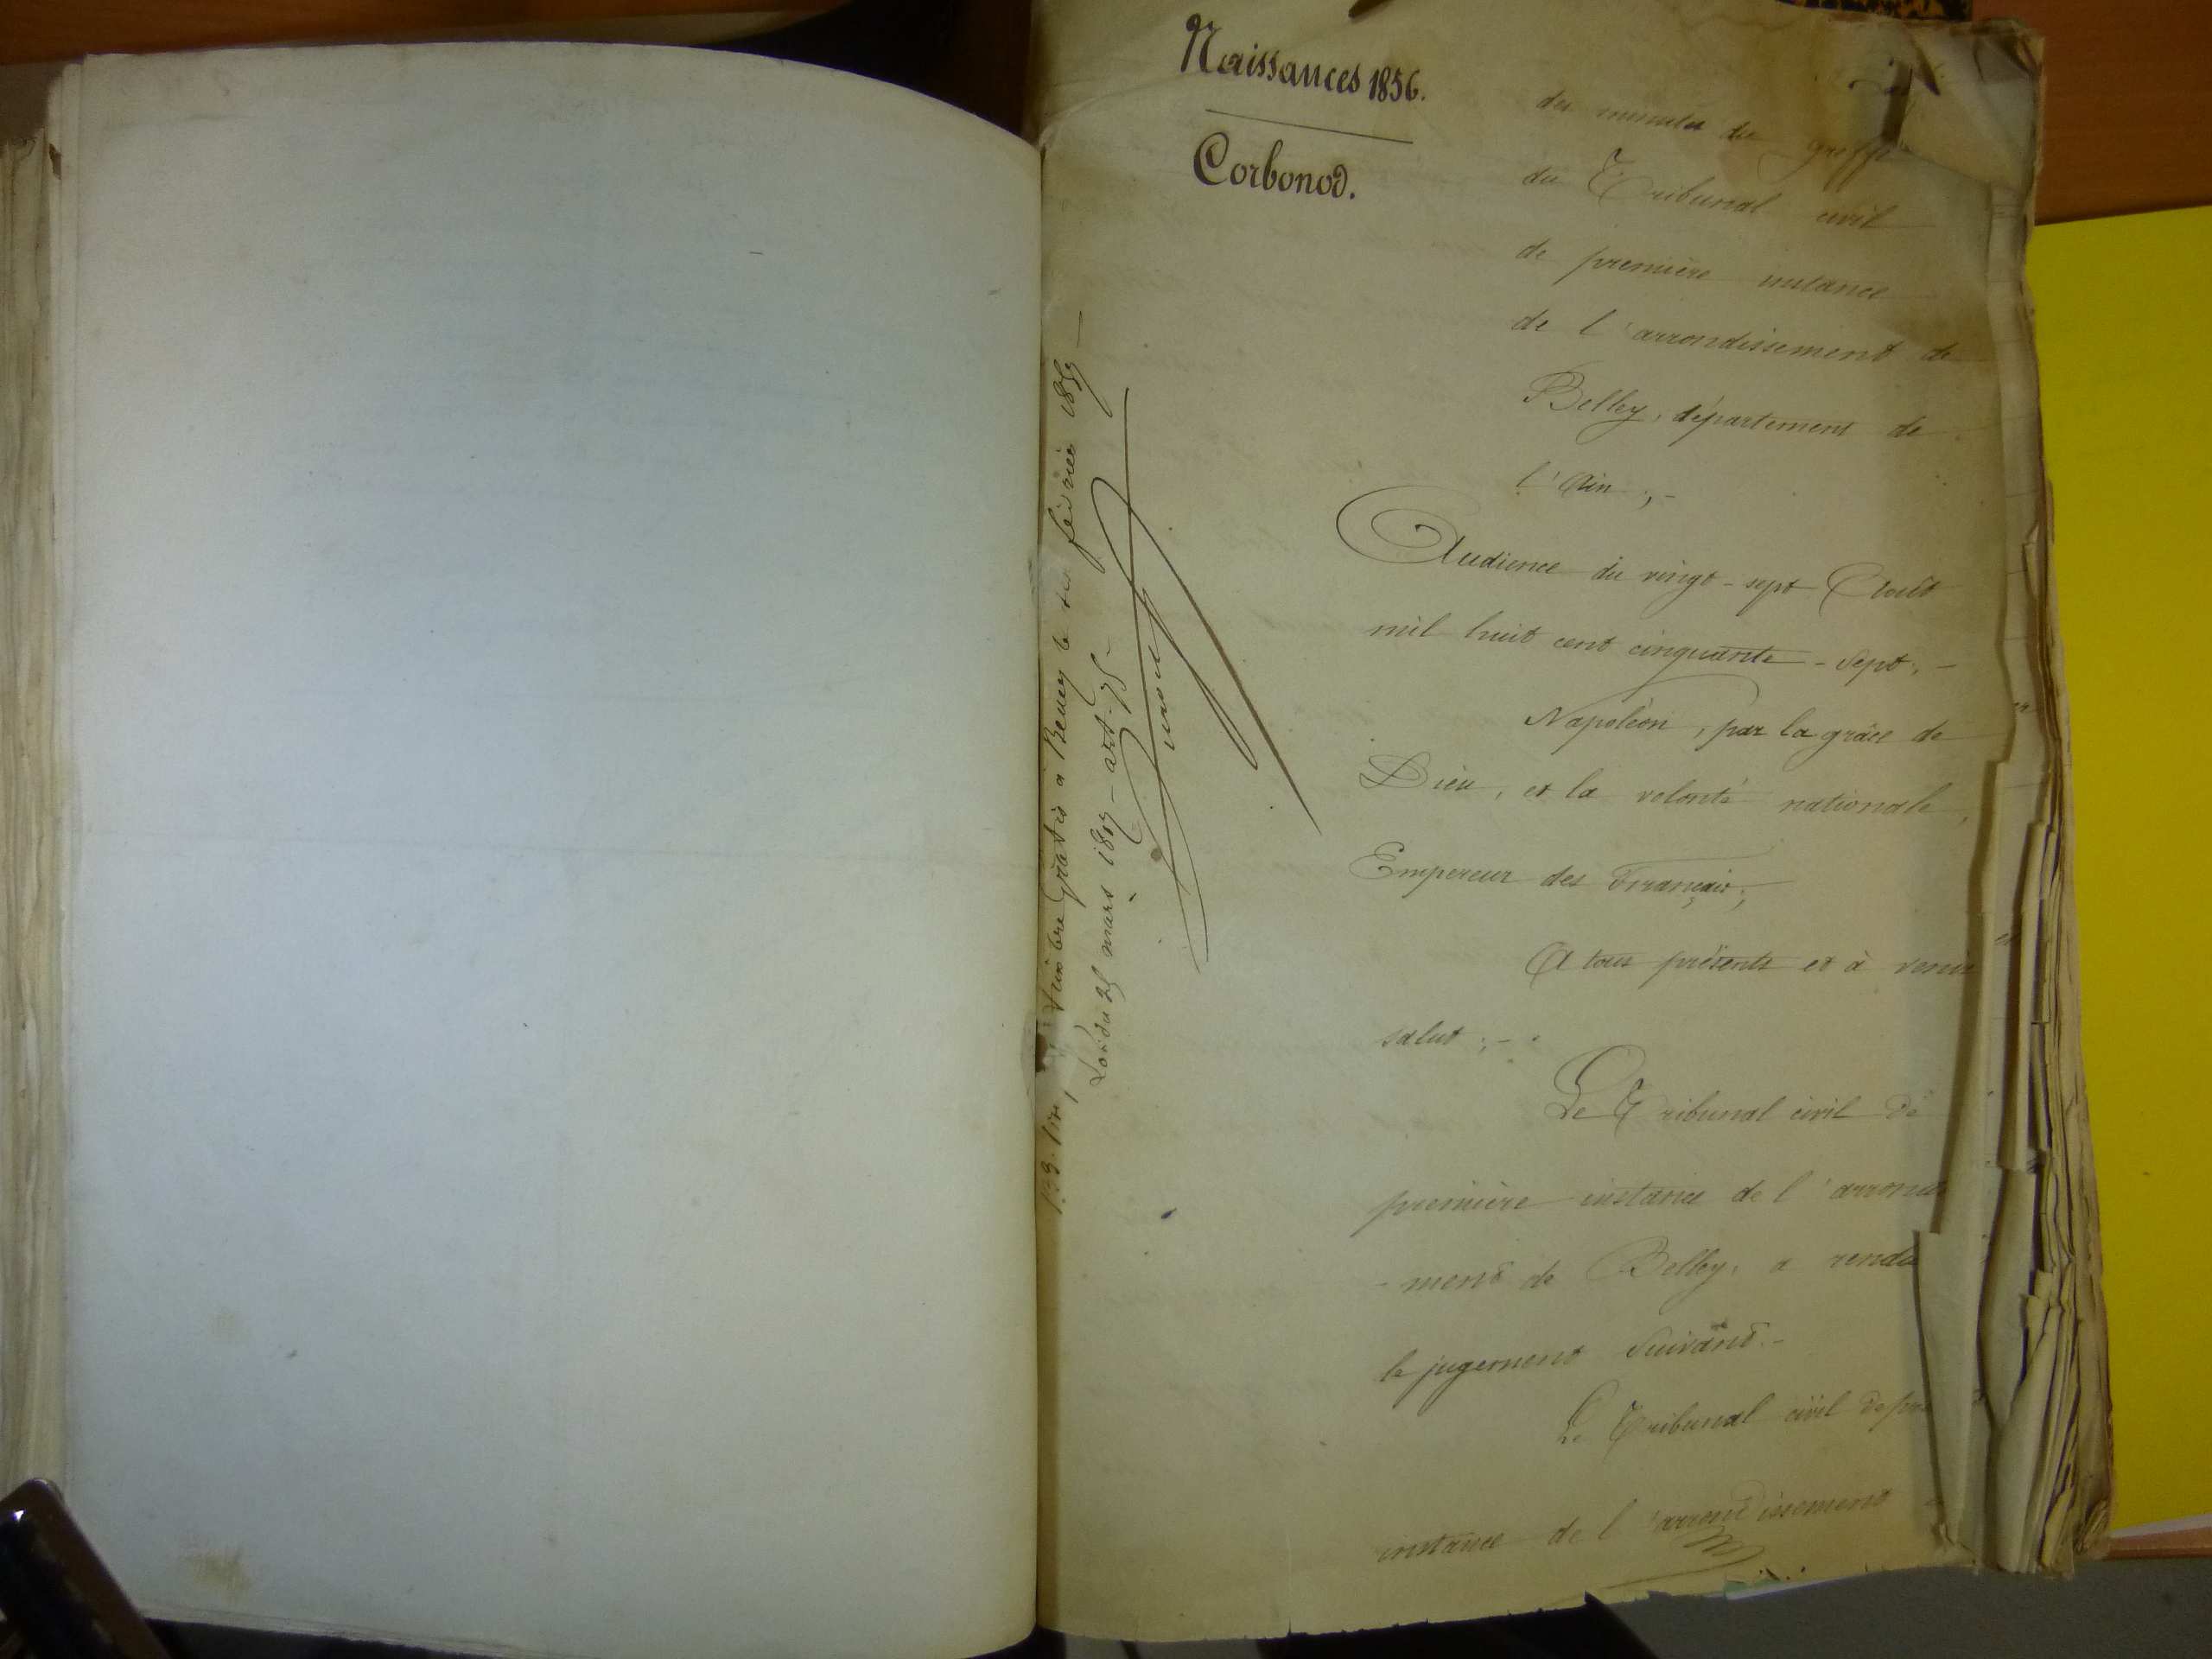 Naissances 1856.
Corbonod.
des minutes du greffe
du Tribunal civil
de première instance
de l'arrondissement de
Belley, département de
l'Ain ;-
Audience du vingt-sept Août
mil huit cent cinquante-sept ;-
Napoléon, par la grâce de
Dieu, et la volonté nationale,
Empereur des Français ;
A tous présents et à venir
salut ;-
Le Tribunal civil de
première instance de l'arrondis
-ment de Belley, a rendu
le jugement suivant.-
Le Tribunal civil de pre
instance de l'arrondissement
Timbre Gratis à février
Loi du 25 mars 1817 - art. 75 -